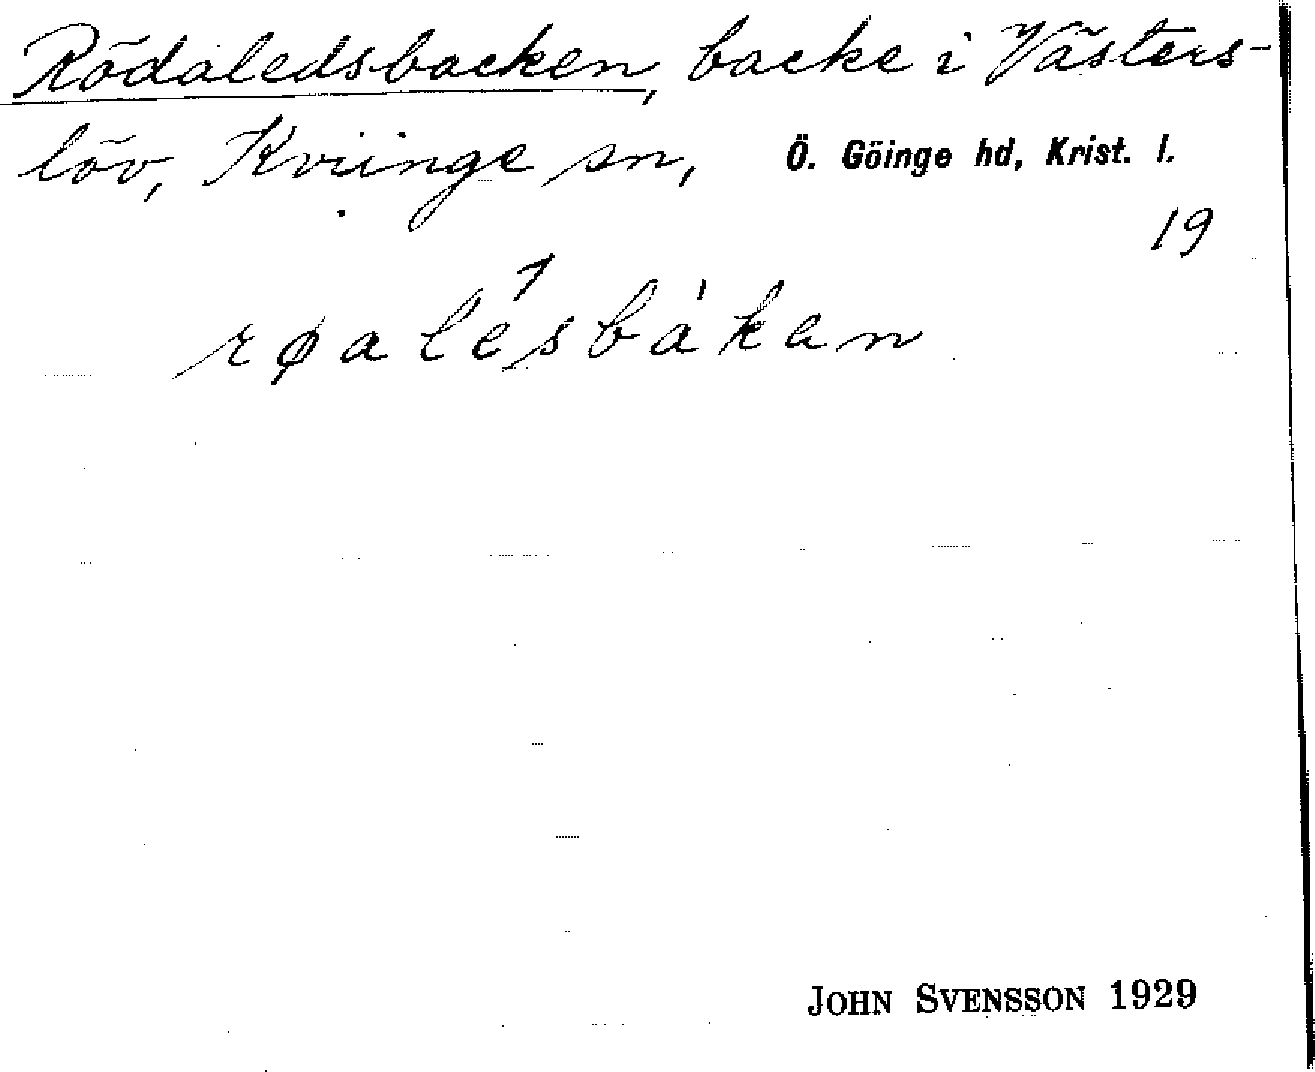 Rödaledsbacken, backe i Västers-
löv, Kviinge sn, Ö. Göinge hd, Krist. l.
19
røalésbákan
JOHN SVENSSON 1929